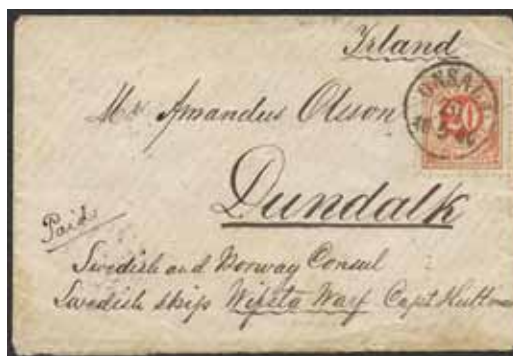 Irland
ONSALA
20
Mr Amandus Olsson
Dundalk
Paid
Swedish and Norway Consul
Swedish skip Capt